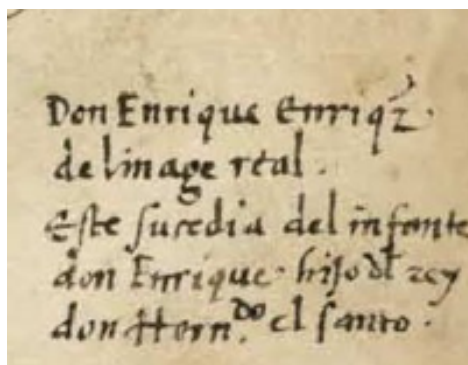 Don Enrique Enriqz.
de linage real.
Este sucedia del infante
don Enrique. hijo dl rey
don Hern.do el santo.